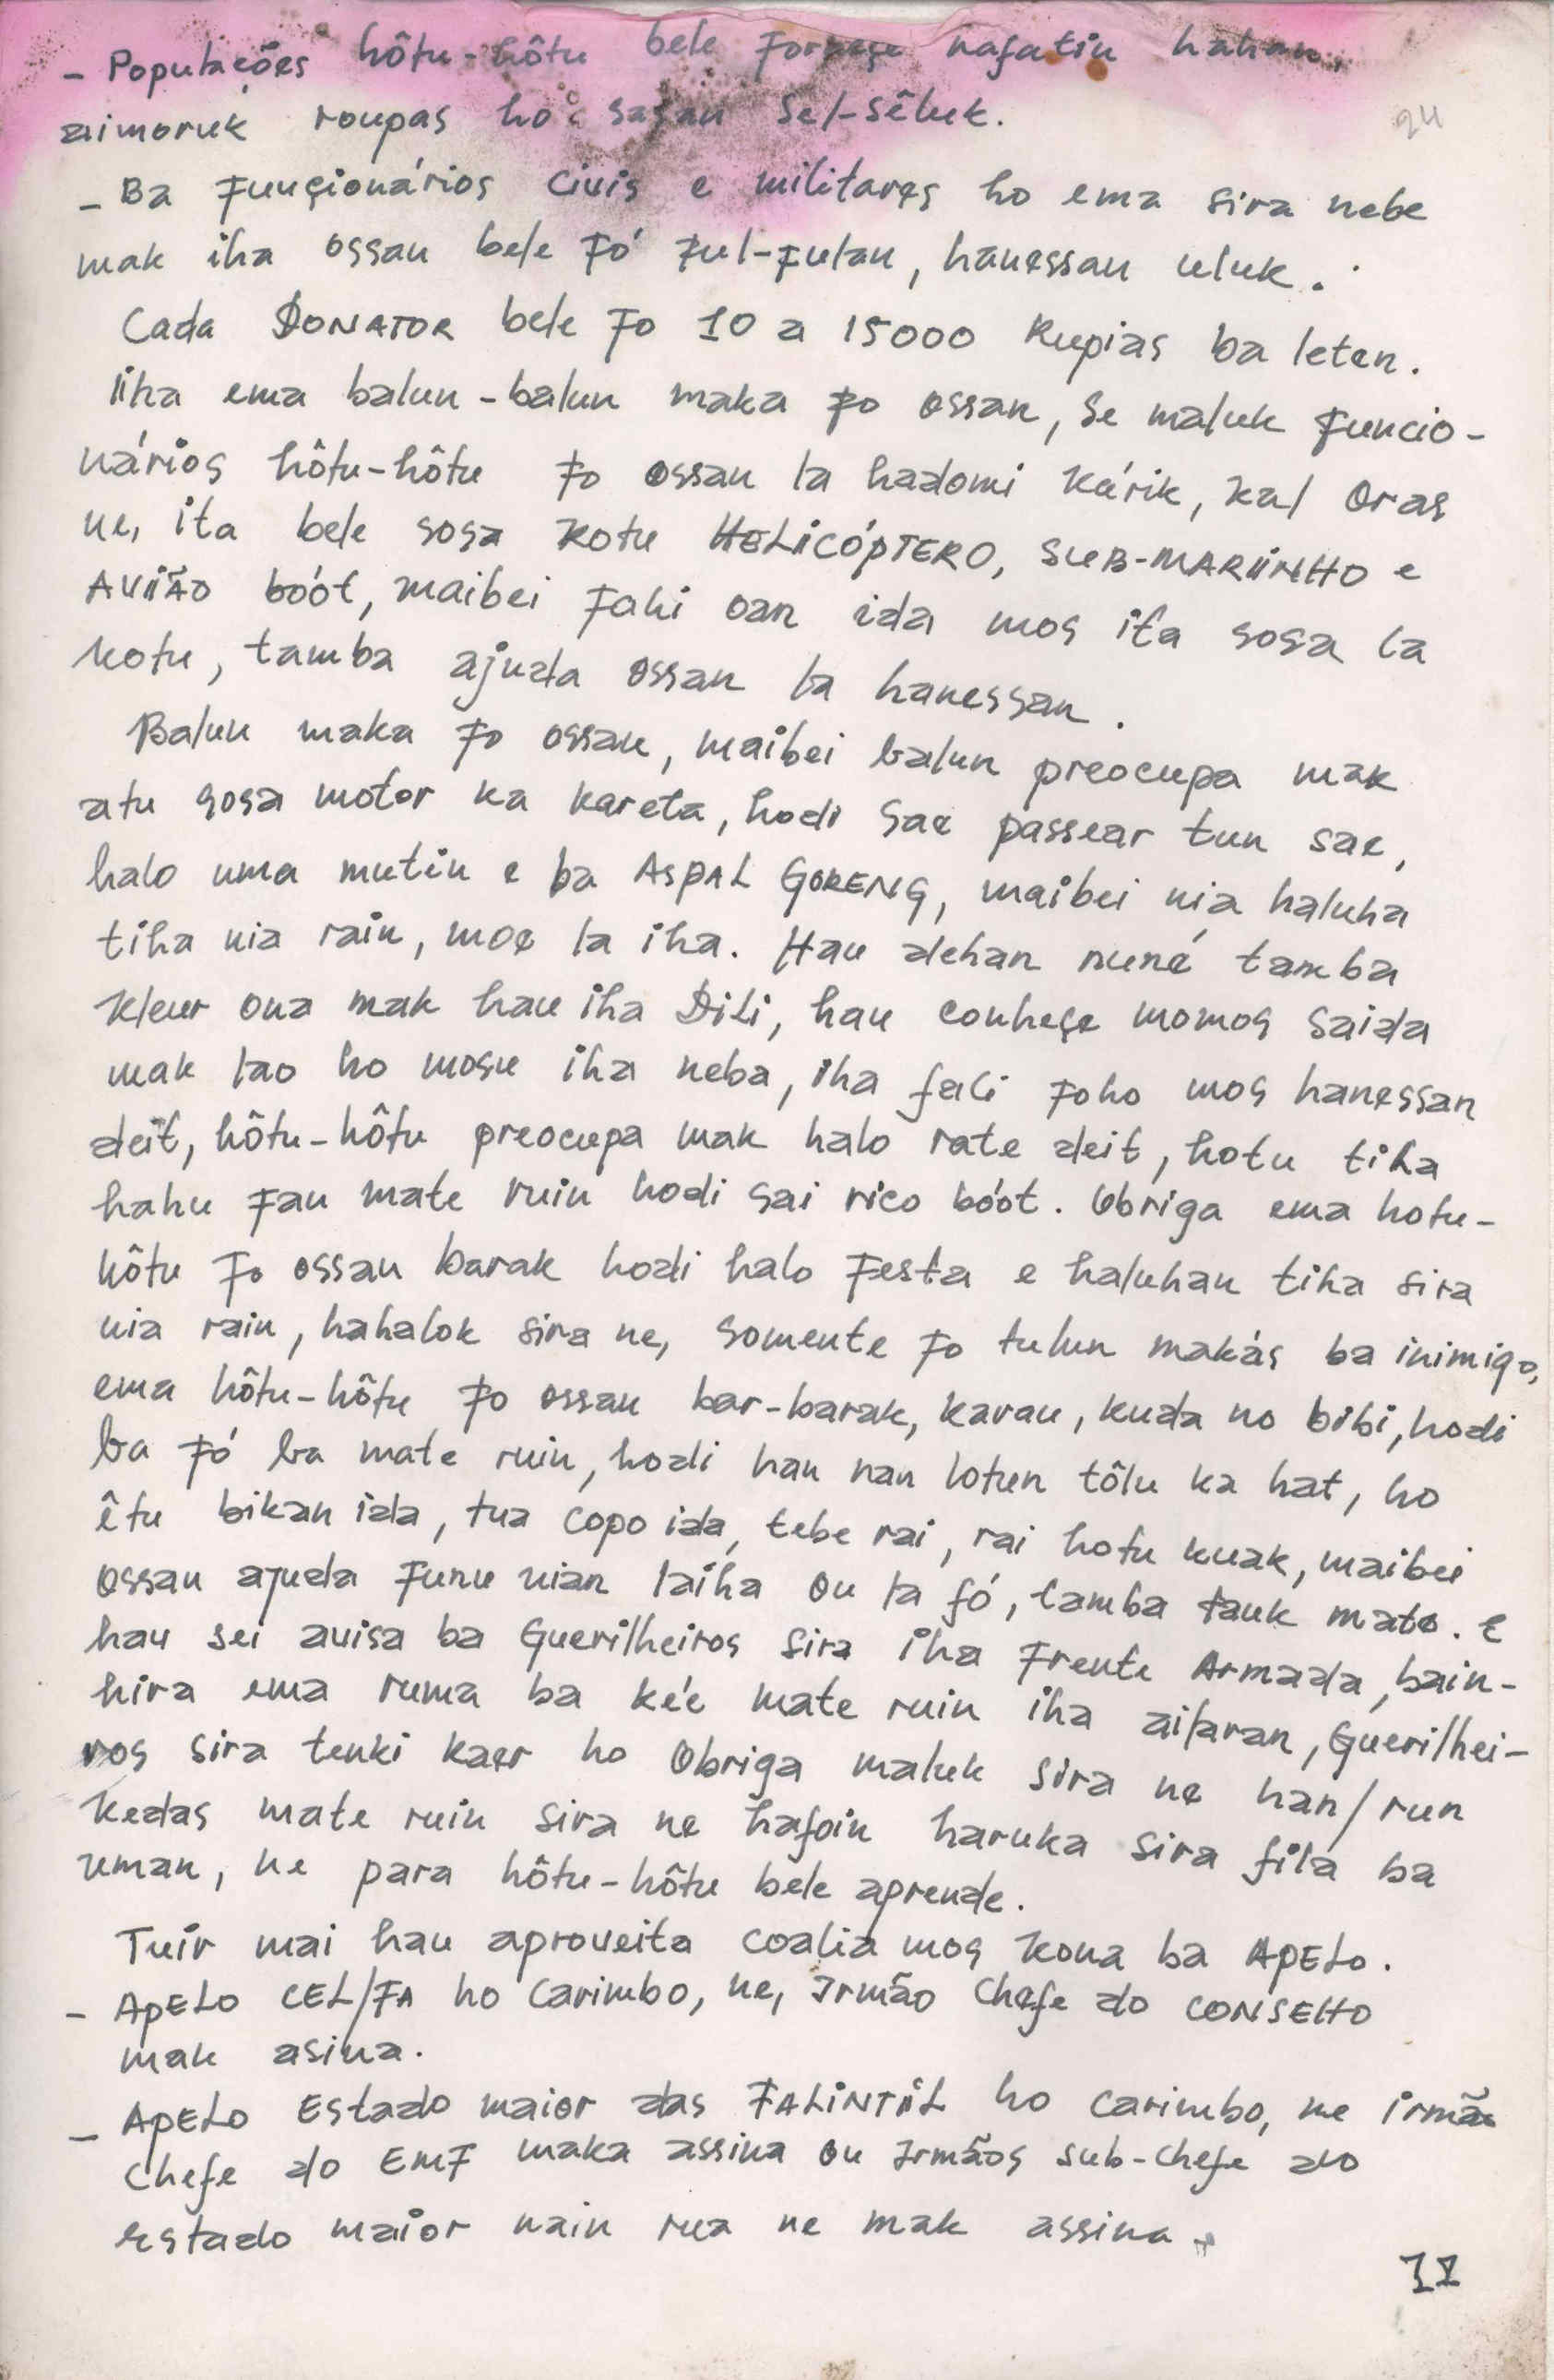 - Populações hôtu-hôtu bele forneçe nafatin hahan,
aimoruk roupas ho sasan sel-sêluk.
24
- Ba Funçionários civis e militares ho ema sira nebe
mak iha ossan bele Fó Ful-Fulan, hanessan uluk.
Cada DONATOR bele Fo 10 a 15000 Rupias ba leten.
Iha ema balun-balun maka Fo ossan, se maluk Funcio-
nários hôtu-hôtu Fo ossan la hadomi kárik, kal oras
ne, ita bele sosa kotu HELICÓPTERO, SUB-MARIINHO e
AVIÃO bóót, maibei Fahi oan ida mos ita sosa la
kotu, tamba ajuda ossan la hanessan.
Balun maka Fo ossan, maibei balun preocupa mak
atu sosa motor ka kareta, hodi sae passear tun sae,
halo uma mutin e ba ASPAL GORENG, maibei nia haluha
tiha nia rain, moe la iha. Hau dehan nuné tamba
kleur ona mak hau iha Dili, hau conheçe momos saida
mak lao ho mosu iha neba, iha fali Foho mos hanessan
deit, hôtu-hôtu preocupa mak halo rate deit, hotu tiha
hahu Fau mate ruin hodi sai rico bóót. Obriga ema hotu-
hôtu Fo ossan barak hodi halo Festa e haluhan tiha sira
nia rain, hahalok sira ne, somente Fo tulun makás ba inimigo,
ema hôtu-hôtu Fo ossan bar-barak, karau, kuda no bibi, hodi
ba Fó ba mate ruin, hodi han nan lotun tôlu ka hat, ho
êtu bikan ida, tua copo ida, tebe rai, rai hotu kuak, maibei
ossan ajuda Funu nian laiha ou la fó, tamba tauk mate. e
hau sei avisa ba Guerilheiros sira iha Frente Armada, bain-
hira ema ruma ba keé mate ruin iha ailaran, Guerilhei-
ros sira tenki kaer ho Obriga maluk sira ne han/run
kedas mate ruin sira ne hafoin haruka sira fila ba
uman, ne para hôtu-hôtu bele aprende.
Tuir mai hau aproveita coalia mos kona ba APELO.
- APELO CEL/FA ho Carimbo, ne, Irmão Chefe do CONSELHO
mak asina.
- APELO Estado maior das FALINTIL ho carimbo, ne irmão
Chefe do EMF maka assina ou Irmãos sub-Chefe do
Estado maior nain rua ne mak assina.
11